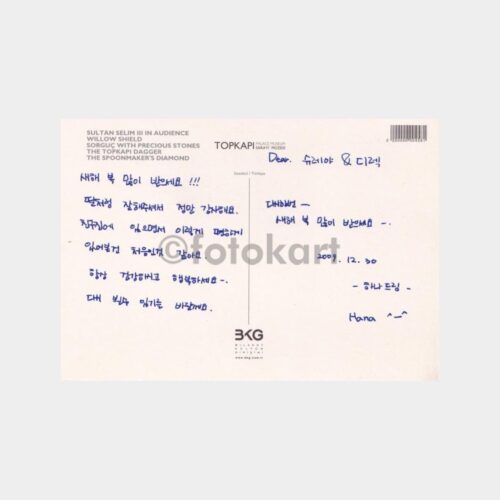 SULTAN SELIM III IN AUDIENCE
WILLOW SHIELD
SORGUÇ WITH PRECIOUS STONES
THE TOPKAPI DAGGER
THE SPOONMAKER'S DIAMOND
TOPKAPI PALACE MUSEUM
SARAYI MÜZESİ
Istanbul / Türkiye
새해 복 많이 받으세요 !!!
딸처럼 잘해주셔서 정말 감사해요.
있으면서 이렇게 편하게
처음인것 같아요
항상 건강하시고 행복하세요-.
대박 있기를 바랄게요.
Dear. 슈레야 & 디렉
새해 복 많이 받으세요 -.
2009. 12. 30
- 하나 드림 -
Hana ^_^
©fotokart
BKG
BİLKENT
KÜLTÜR
GİRİŞİMİ
www.bkg.com.tr